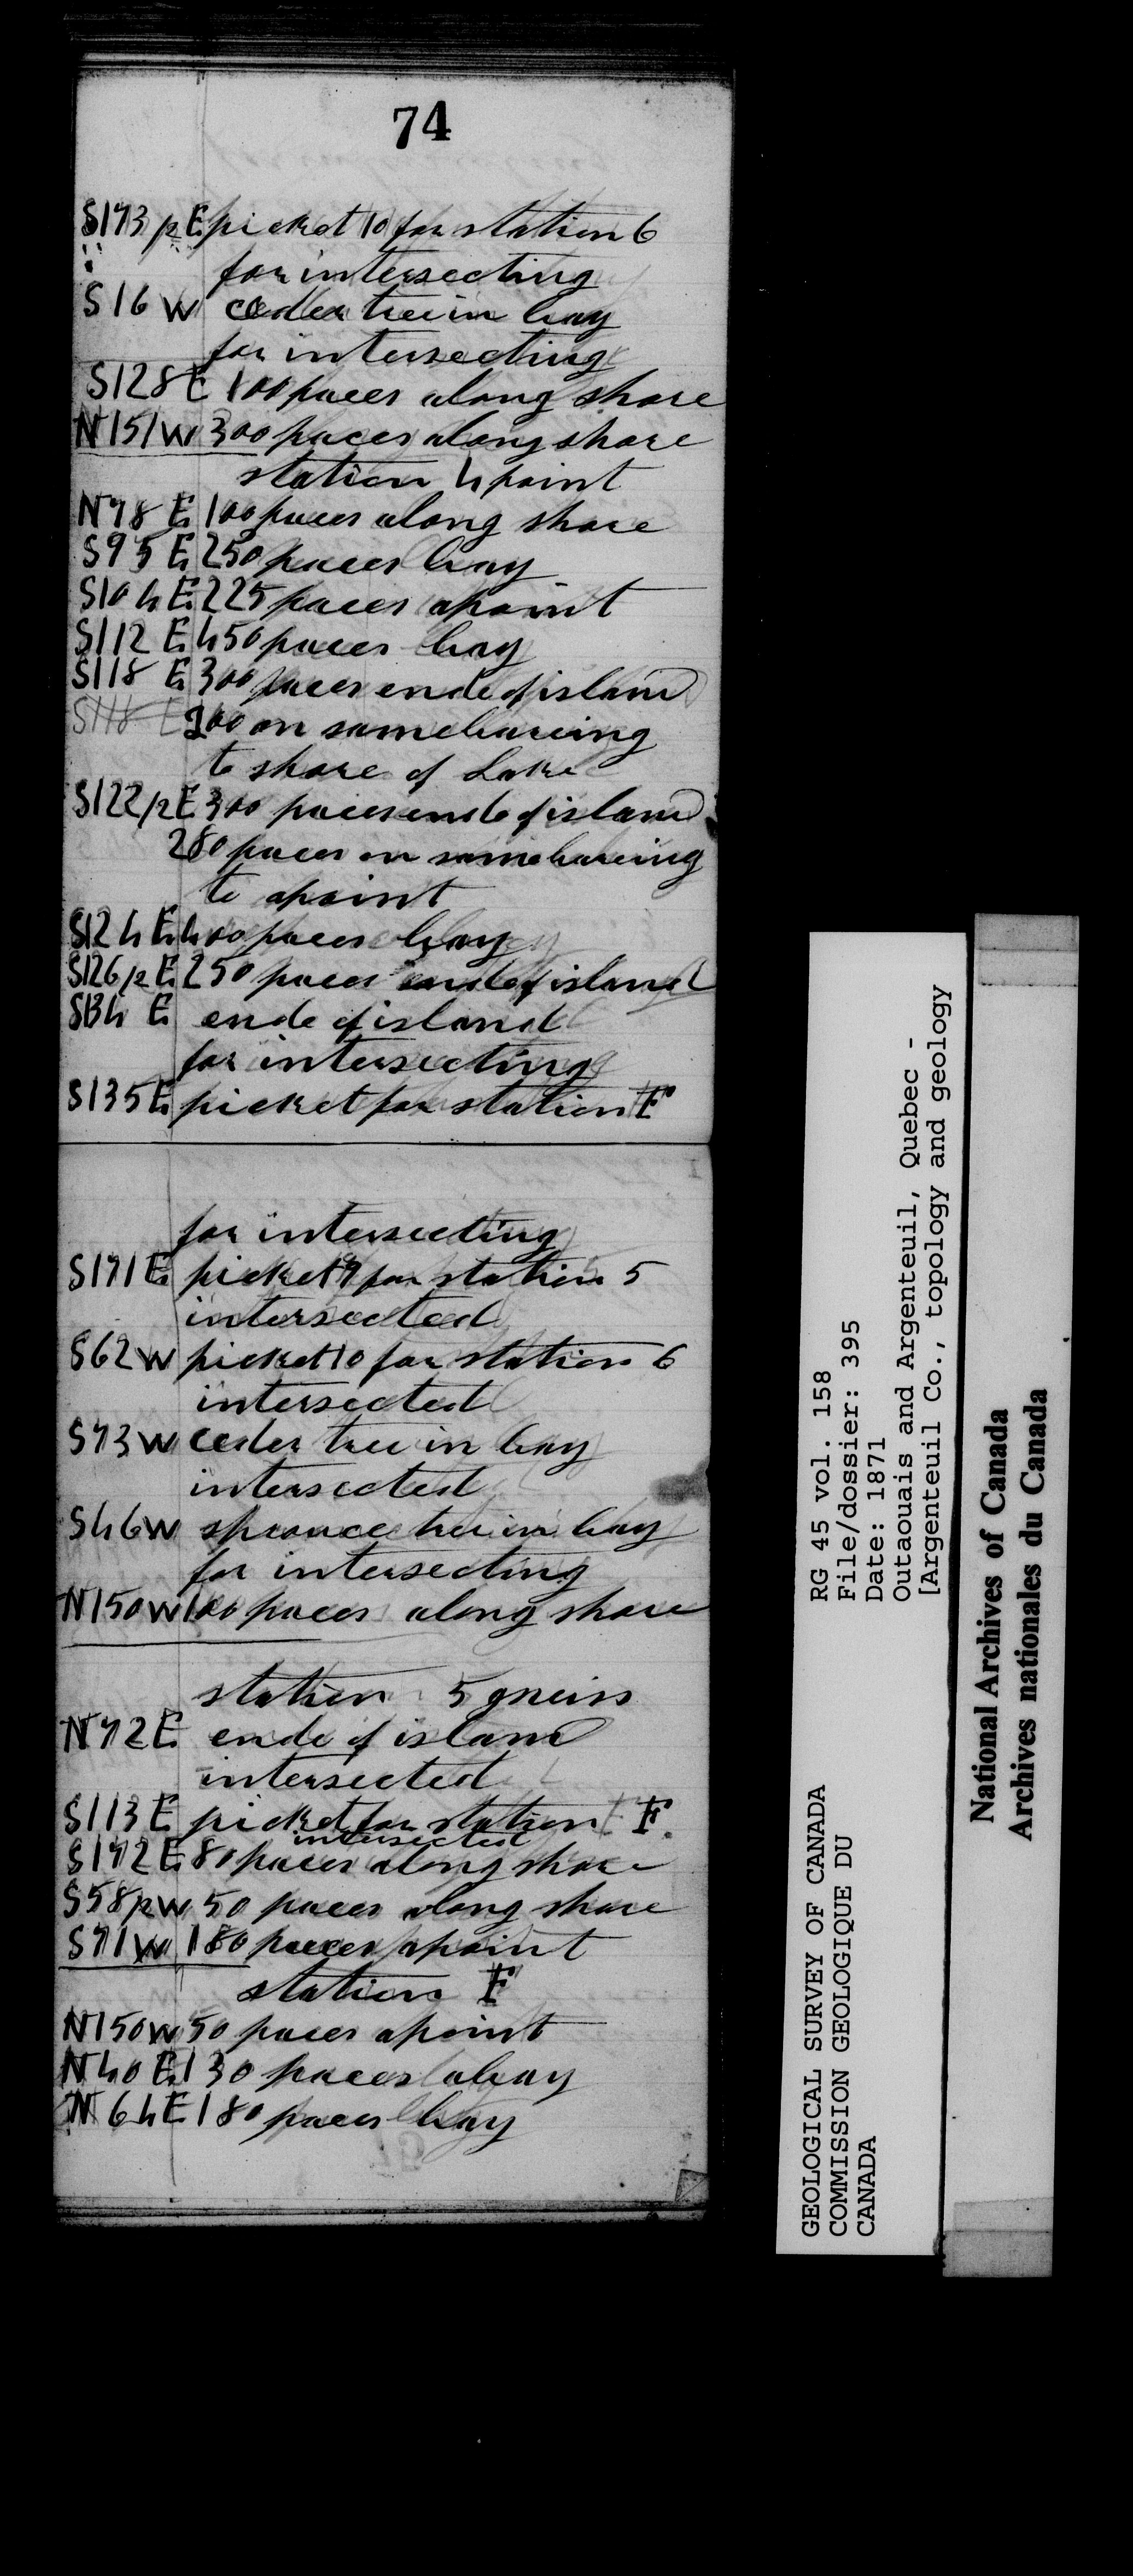 74
S173/2 E picket 10 for station 6
for intersecting
S16 W ceder tree in bay
for intersecting
S128 E 100 paces along shore
N151 W 300 paces along shore
station 4 point
N78 E 100 paces along shore
S95 E 250 paces bay
S104 E 225 paces apoint
S112 E 450 paces bay
S118 E 300 paces ende of island
S118 E 200 on same bareing
to shore of Lake
S122/2 E 300 paces ende of island
280 paces on same bareing
to apoint
S124 E 400 paces bay
S126/2 E 250 paces ende of island
S134 E ende of island
for intersecting
S135 E picket for station F
for intersecting
S171 E picket 9 for station 5
intersected
S62 W picket 10 for station 6
intersected
S73 W ceder tree in bay
intersected
S46 W sprouce tree in bay
for intersecting
N150 W 100 paces along shore
station 5 gneiss
N72 E ende of island
intersected
S113 E picket for station F
intersected
S172 E 80 paces along shore
S58/2 W 50 paces along shore
S71 W 180 paces apoint
station F
N150 W 50 paces apoint
N40 E 130 paces abay
N64 E 180 paces bay
GEOLOGICAL SURVEY OF CANADA
COMMISSION GEOLOGIQUE DU
CANADA
RG 45 vol. 158
File/dossier: 395
Date: 1871
Outaouais and Argenteuil, Quebec -
[Argenteuil Co., topology and geology
National Archives of Canada
Archives nationales du Canada